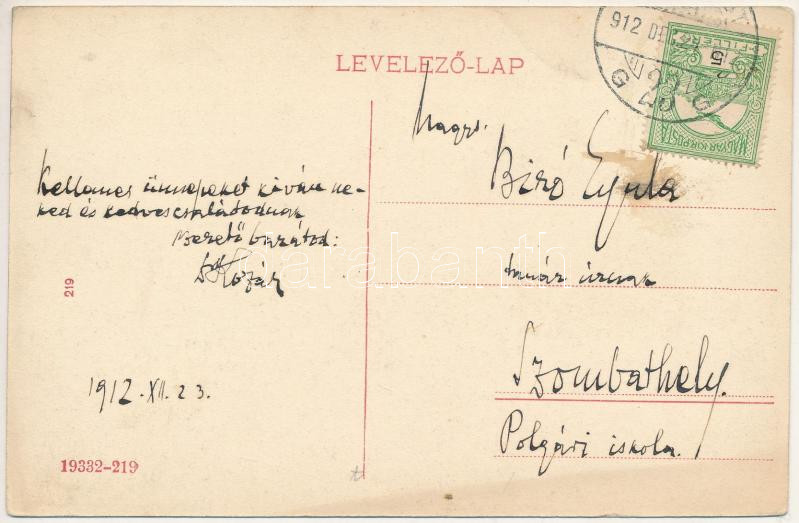 LEVELEZŐ-LAP
912 DE
MAGYAR KIR. POSTA
5
FILLÉR
Kellemes ünnepeket kíván ne-
ked és kedves családodnak
szerető barátod:
Kozár
1912. XII. 23.
219
19332-219
Nagys.
Biró Gyula
tanár úrnak
Szombathely.
Polgári iskola.
darabanth